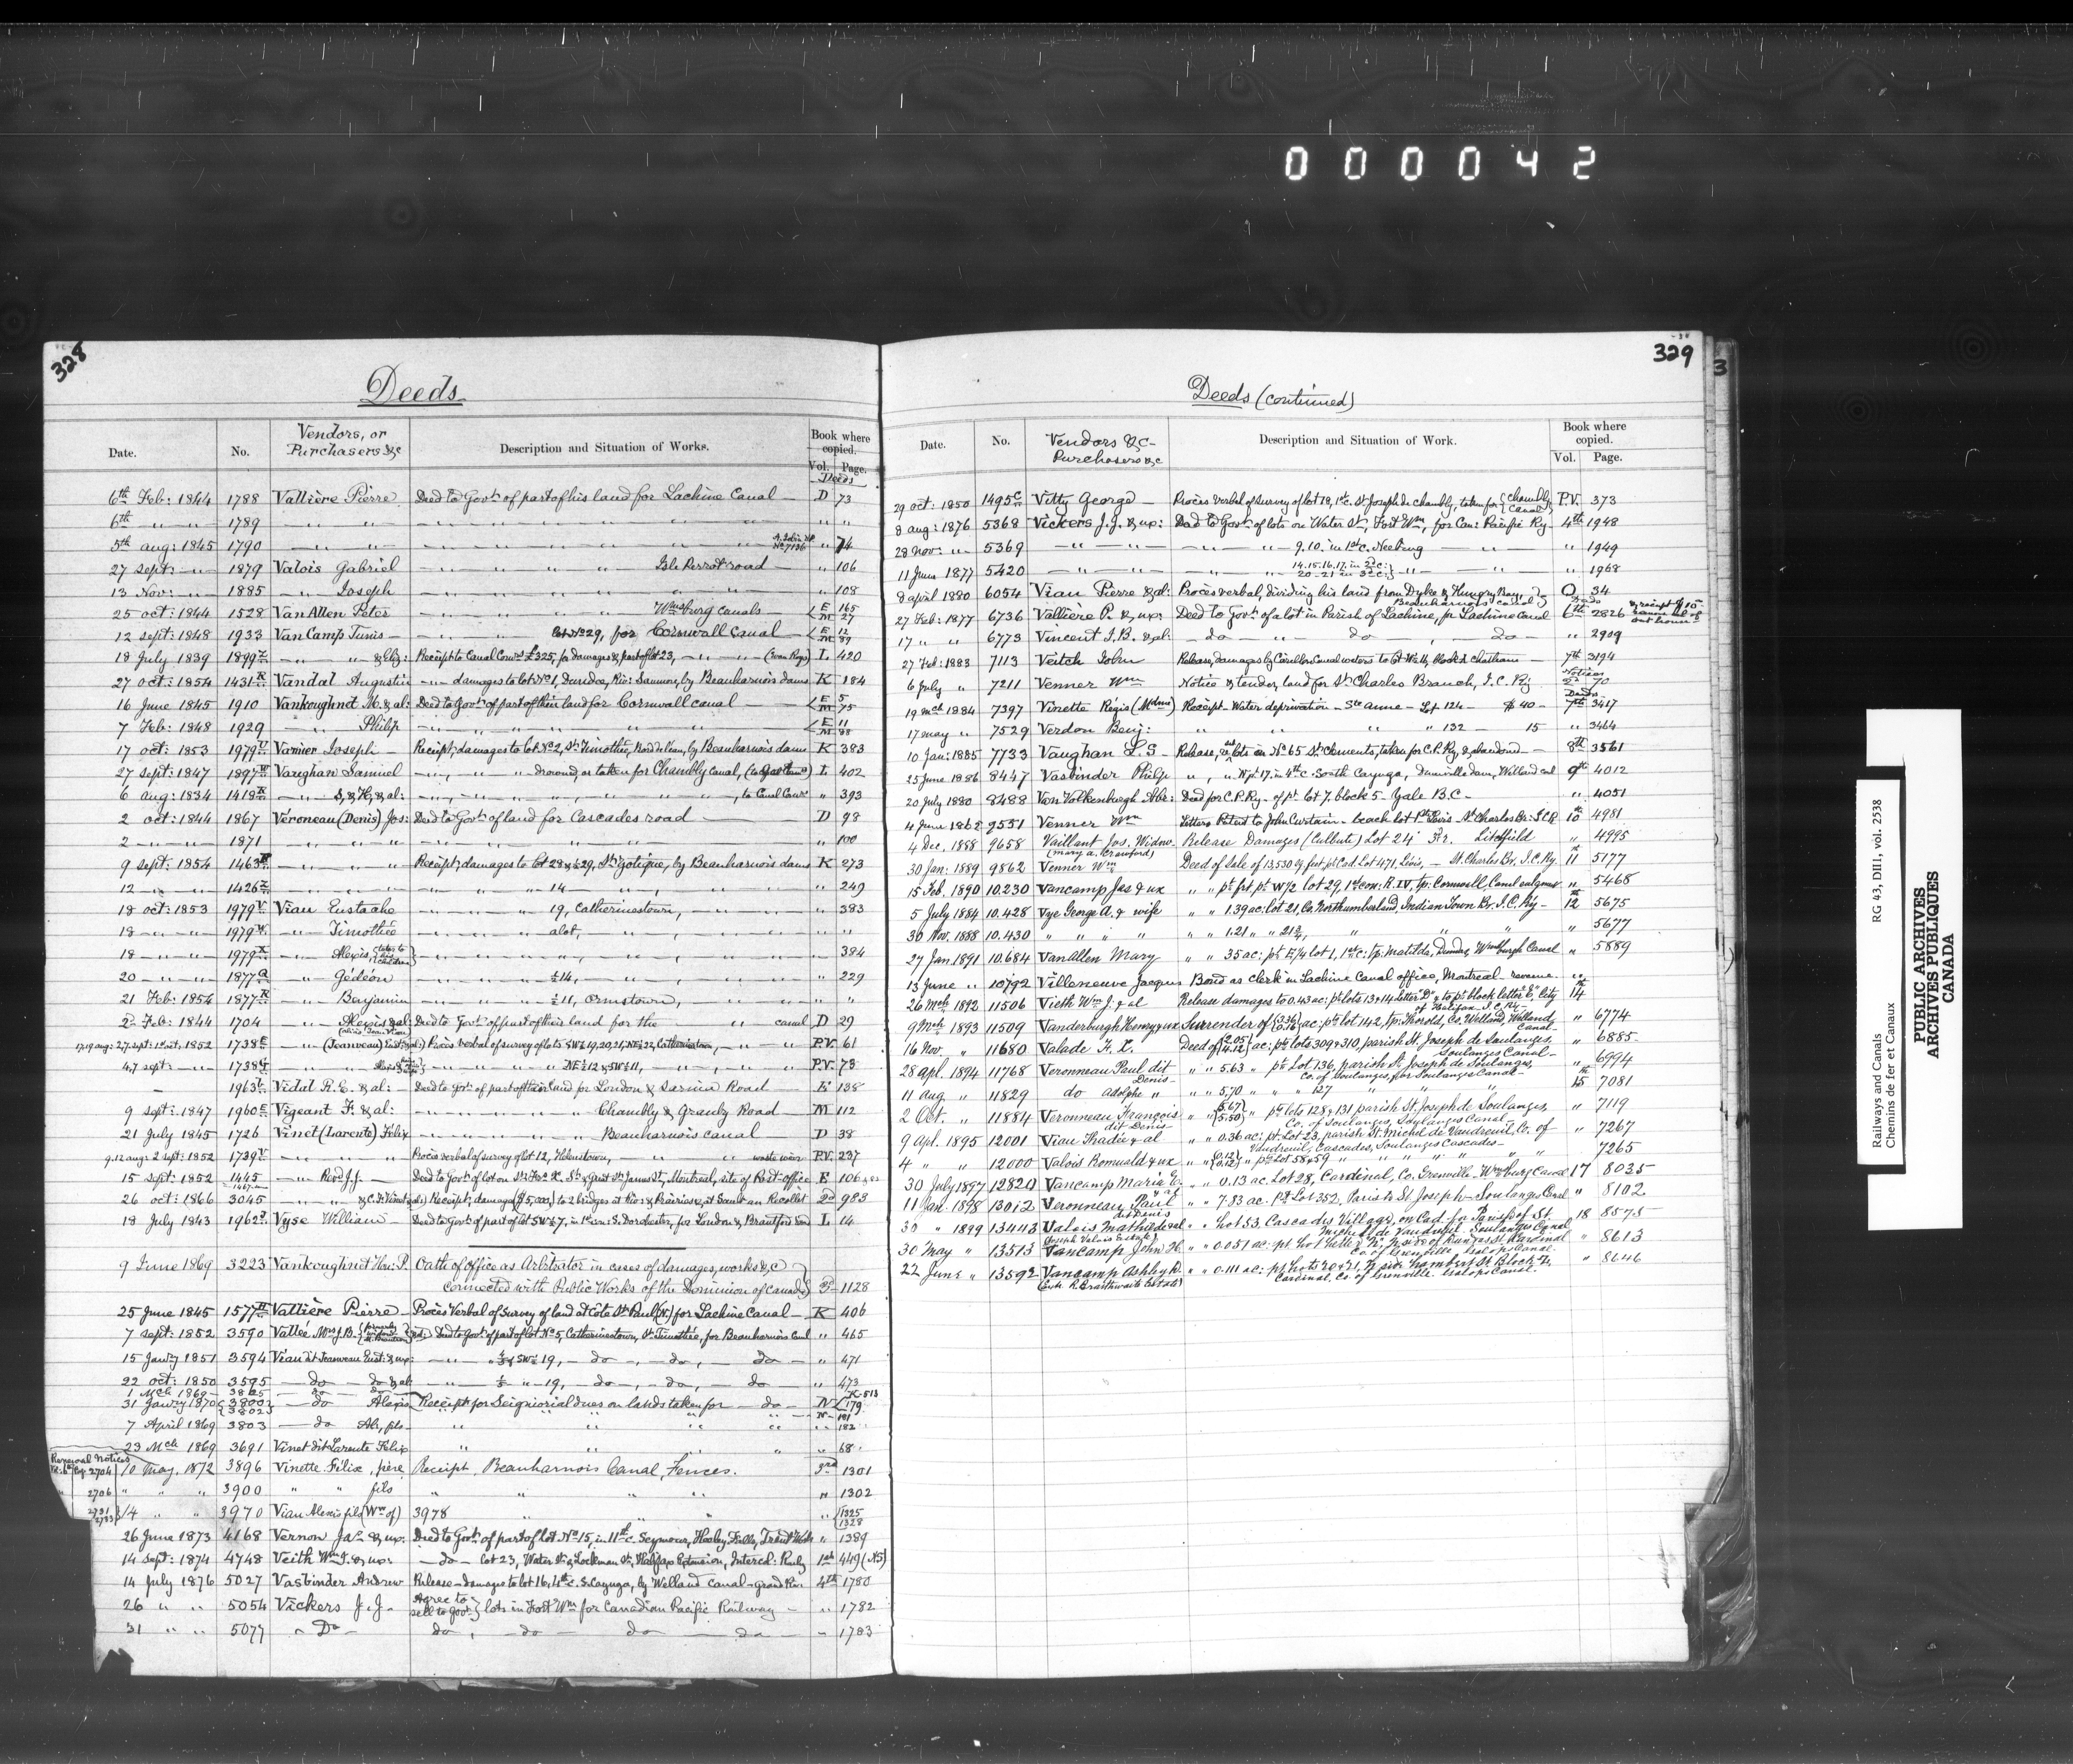 000042
328
Deeds
Date. No. Vendors, or Purchasers &c Description and Situation of Works. Book where copied. Vol. Page.
Deeds
6th Feb: 1844 1788 Vallière Pierre Deed to Govt of part of his land for Lachine Canal — D 73
6th — " — " — 1789 — " — " — " "
5th aug: 1845 1790 — " — " — No 7136 " 74
27 Sept: — " — 1879 Valois Gabriel — " — " Isle Perrot road — " 106
13 Nov: — " — 1885 — " — Joseph — " — " — " 108
25 oct: 1844 1528 VanAllen Peter — " — " Wmsburg canals — E 165 M 27
12 sept: 1848 1933 VanCamp Tunis — " — " Lot No 29, for Cornwall Canal — E 12 M 89
18 July 1839 1899 — " — " & Eliz: Receipt to Canal Comrs £325, for damages & part of lot 23, — " — " — L 420
27 oct: 1854 1431 Vandal Augustin — " — damages to lot No 1, Dundee, Riv: Saumon, by Beauharnois dams K 184
16 June 1845 1910 Vankoughnet M. & al: Deed to Govt of part of their land for Cornwall canal — E 5 M 75
7 Feb: 1848 1929 — " — Philip — " — " — E 11 M 88
17 oct: 1853 1979 Vannier Joseph — Receipt, damages to lot No 2, St Timothée, by Beauharnois dams K 383
27 Sept: 1847 1897 Vaughan Samuel — " — " drowned or taken for Chambly Canal, L 402
6 aug: 1834 1418 — " — S, & H, & al: — " — " — , to Canal Comrs " 393
2 oct: 1844 1867 Véroneau (Denis) Jos: Deed to Govt of land for Cascades road — D 98
2 — " — " — 1871 — " — " — " 100
9 sept: 1854 1463 — " — " Receipt, damages to lot 28 & ½ 29, St Zotique, by Beauharnois dams K 273
12 — " — " — 1426 — " — " — 14 — " 249
18 oct: 1853 1979 V Viau Eustache — " — " 19, Catherinestown, — " — " 383
18 — " — " — 1979 — " — Timothée — " — a lot, — " " "
18 — " — " — 1979 X — " — Alexis, — " — " 384
20 — " — " — 1877 — " — Gédéon — " — ½ 14, — " 229
21 Feb: 1854 1877 — " — Benjamin — " — ½ 11, Ormstown, — " " "
2d Feb: 1844 1704 — " — Alexis & al: Deed to Govt of part of their land for the — " — canal D 29
17, 19 aug: 27 sept: 1st oct: 1852 1738 — " — (Jeanveau) Procès verbal of survey of lots SW ½ 19, 20, 21, NE ½ 22, Catherinestown, — " — P.V. 61
4, 7 sept: — " — 1738 — " — NE ½ 12 & SW ½ 11, — " — P.V. 73
— 1963 Vidal A. E. & al: — Deed to govt: of part of their land for London & Sarnia Road — E 138
9 sept: 1847 1960 Vigeant F. & al: — " — " Chambly & Granby Road — M 112
21 July 1845 1726 Vinet (Larente) Félix — " — " Beauharnois canal D 38
9, 12 aug: 2 sept: 1852 1739 — " — " Procès verbal of survey of lot 12, Helenstown, — " — waste weir P.V. 237
15 sept: 1852 1445 — " — Revd J. J. — Deed to Govt of lot on St Frs X. St & great St James St, Montreal, site of Post office E 106
26 oct: 1866 3045 — " — & C. F. Vinet & al: Receipt, damages ($5,000) to 2 bridges at Riv: des Prairies & at Sault au Recollet 2d 983
18 July 1843 1962 Vyse William — Deed to Govt of part of lot SW ½ 7, in 1st con: S. Dorchester, for London & Brantford Road L 14
9 June 1869 3223 Vankoughnet Hon: P. Oath of office as Arbitrator in cases of damages, works &c
connected with Public Works of the Dominion of Canada 3d — 1128
25 June 1845 1577 Vallière Pierre — Procès Verbal of survey of land at Côte St Paul (N.) for Lachine Canal — K 406
7 sept: 1852 3590 Vallée Mrs J. B. Deed to Govt of part of lot No 5, Catherinestown, St Timothée, for Beauharnois Canal " 465
15 Jany 1851 3594 Viau dit Jeanveau Eust: & ux: — " — SW ½ 19, — do —, — do, — do — " 471
22 oct: 1850 3595 — do — do & al: — " — ½ " — 19, — do —, — do, — do — " 473
1 Mch 1869 — 3865 — do — K-513
31 Jany 1870 3800 3802 — do Alexis Receipt for Seigniorial dues on lands taken for — do — N 179
N — 181
7 April 1869 3803 — do Al:, fils — " " " " " 182
23 Mch 1869 3691 Vinet dit Larente Félix " " " " 68
Renewal Notices
Vol: 6th Pag. 2704 10 May, 1872 3896 Vinette Félix, père Receipt, Beauharnois Canal, Fences. 3rd 1301
" 2706 " " " 3900 " " fils " " " " 1302
2731 2733 14 " " 3970 Viau Alexis fils (Ww of) 3978 " " 1325 1328
26 June 1873 4168 Vernon Jas & ux: Deed to Govt of part of lot No 15, in 11th c. Seymour, Healey Falls, Trent Works " 1389
14 sept: 1874 4748 Veith Wm J. & ux: — do — lot 23, Water St & Lockman St, Halifax Extension, Intercol: Railwy 1st 449 (NS)
14 July 1876 5027 Vasbinder Andrew Release — damages to lot 16, 4th c. S. Cayuga, by Welland canal — grand Riv: 4th 1780
26 " " 5054 Vickers J. J. Agree to sell to govt: lots in Fort Wm for Canadian Pacific Railway — " 1782
31 " " 5077 " Do — do, — do — do — do — " 1783
329
3
Deeds (continued)
Date. No. Vendors &c — Purchasers &c Description and Situation of Work. Book where copied. Vol. Page.
29 oct: 1850 1495 Vitty George — Procès Verbal of survey of lot 18, 1st c. St Joseph de Chambly, taken for Chambly Canal P.V. 373
8 aug: 1876 5368 Vickers J. J. & ux: Deed to Govt of lots on Water St, Fort Wm, for Can: Pacific Ry 4th 1948
28 Nov: " 5369 — " — " — " — 9. 10. in 1st c. Neebing — " — " 1949
11 June 1877 5420 — " — " — 14. 15. 16. 17. in 2d c: 20 — 21 in 3d c: — " — " 1968
8 april 1880 6054 Viau Pierre & al: Procès verbal, dividing his land from Dyke & Hungry Bay, Beauharnois canal 34
Deeds
27 Feb: 1877 6736 Vallière P. & ux: Deed to Govt of a lot in Parish of Lachine, for Lachine Canal 6th 2826
17 " " 6773 Vincent J. B. & al: — do — " — do , — do — " 2909
27 Feb: 1883 7113 Veitch John Release, damages by Carillon Canal waters to lot Wells, Chatham — 7th 3194
Notices
6 July " 7211 Venner Wm Notice & tender, land for St Charles Branch, I. C. Ry 70
Deeds
19 Mch 1884 7397 Vinette Régis (Mdme) Receipt — Water deprivation — Ste Anne — Lot 124 — $ 40 — 7th 3417
17 May " 7529 Verdon Benj: " " " " 132 — 15 " 3464
10 Jan: 1885 7733 Vaughan L. S — Release, lots in No 65 St Clements, taken for C. P. Ry, & abandoned — 8th 3561
25 June 1886 8447 Vasbinder Philip " , " N pt 17. in 4th c. South Cayuga, Dunnville dam, Welland canl 9th 4012
20 July 1880 8488 Van Volkenburgh Abr: Deed for C. P. Ry. of pt Lot 7. block 5 — Yale B. C — " 4051
4 June 1862 9551 Venner Wm Letters Patent to John Curtain — beach lot Pte Lévis — St Charles Br: I C R 10th 4981
4 Dec. 1888 9658 Vaillant Jos. Widow (Mary A. Crawford) Release Damages (Culbute) Lot 24 3d r. Litchfield " 4995
30 Jan: 1889 9862 Venner Wm Deed of Sale of 13,530 sq. feet, pt Cad. Lot 471, Lévis, — St. Charles Br, I. C. Ry. 11th 5177
15 Feb. 1890 10.230 Vancamp Jas & ux " " pt frt. pt W ½ lot 29, 1st con: R. IV, tp: Cornwall, Canal enlgmt " 5468
5 July 1884 10.428 Vye George A. & wife " " 1.39 ac: lot 21, Co. Northumberland, Indian Town Br. I. C. Ry — 12th 5675
30 Nov. 1888 10.430 " " " " " " 1.21 " " 21 ¾, " " " " 5677
27 Jan 1891 10.684 VanAllen Mary " " 35 ac: pt E ¼ lot 1, 1st c: tp: Matilda, Dundas, Wmsburgh Canal " 5889
13 June " 10792 Villeneuve Jacques Bond as Clerk in Lachine Canal office, Montreal — revenue. "
26 Mch 1892 11506 Vieth Wm J. & al Release damages to 0.43 ac: pt lots 13 & 14 letter "D" & to pt block letter "E", City of Halifax — I. C. Ry. 14th
9 Mch 1893 11509 Vanderburgh Henry & ux Surrender of ac: pt lot 142, tp: Thorold, Co. Welland, Welland Canal — " 6774
16 Nov. " 11680 Valade F. X. Deed of 2.05 4.12 ac: pt lots 309 & 310, parish St. Joseph de Soulanges, Soulanges Canal — " 6885
28 Apl. 1894 11768 Veronneau Paul dit Denis — " " 5.63 " pt Lot 136, parish St Joseph de Soulanges, Co. of Soulanges, for Soulanges Canal — " 6994
11 Aug " 11829 do Adolphe " " " 5.70 " " " 127 " " " " 15th 7081
2 Oct. " 11884 Veronneau François dit Denis " " 5.67 5.50 " pt lots 128 & 131 parish St. Joseph de Soulanges, Co. of Soulanges, Soulanges Canal — " 7119
9 Apl. 1895 12001 Viau Thadée & al " " 0.36 ac: pt. Lot 23, parish St. Michel de Vaudreuil, Co. of Vaudreuil, Cascades, Soulanges Cascades — " 7267
4 " " 12000 Valois Romuald & ux " " 0.12 0.12 " pt Lot 58 & 59 " " " " " 7265
30 July 1897 12820 Vancamp Maria E. & al " " 0.13 ac Lot 28, Cardinal, Co. Grenville. Wmsburg Canal 17 8035
11 Jan. 1898 13012 Veronneau Paul dit Denis " " 7.83 ac. Pt Lot 352. Parish St Joseph — Soulanges Canal " 8102
30 " 1899 13443 Valois Mathilde & al (Joseph Valois Estate) " " Lot 53. Cascades Village, on Cad. for Parish of St. Michel de Vaudreuil — Soulanges Canal 18 8575
30 May " 13513 Vancamp John H. " " 0.051 ac: pt. Lot N. side of Dundas St. Cardinal Co. of Grenville Galops Canal. " 8613
22 June " 13592 Vancamp Ashby D. (Exr R. Braithwaite Estate) " " 0.111 ac: pt Lots 20 & 21, N. side Lambert St. Block F, Cardinal, Co. of Grenville. Galops Canal. " 8646
Railways and Canals RG 43, DIII, vol. 2538
Chemins de fer et Canaux
PUBLIC ARCHIVES
ARCHIVES PUBLIQUES
CANADA